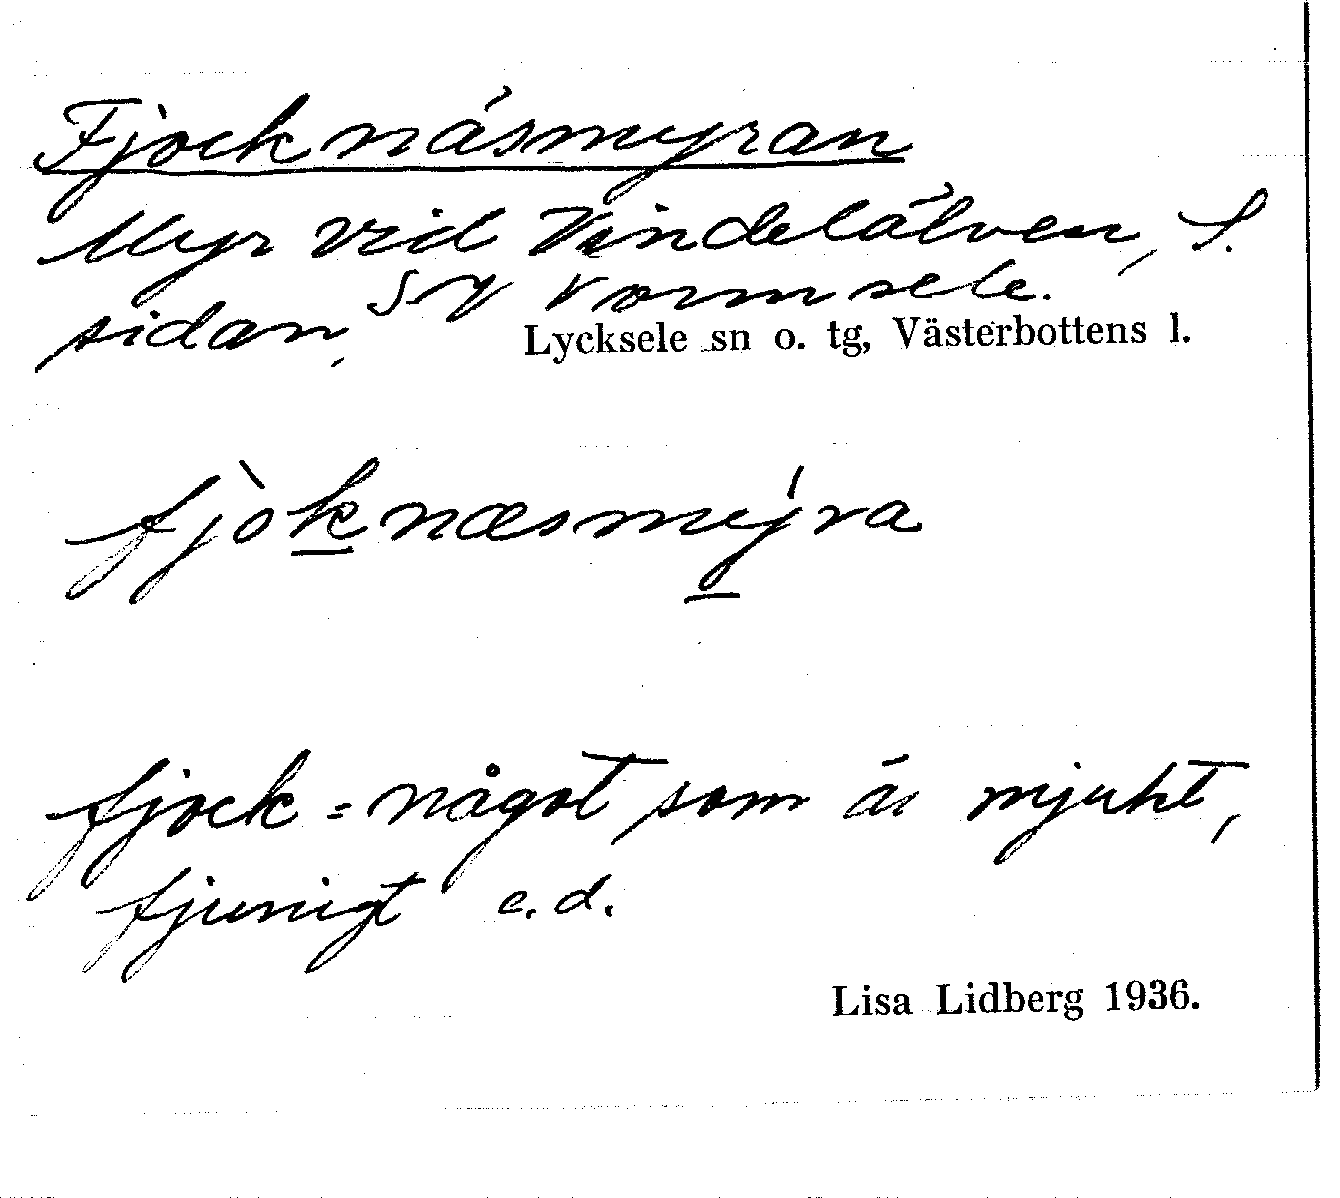 Fjocknäsmyran
Myr vid Vindelälven, S.
sidan, SV Vormsele.
Lycksele sn o. tg, Västerbottens l.
fjòknæsmýra
fjock = något som är mjukt,
fjunigt e.d.
Lisa Lidberg 1936.